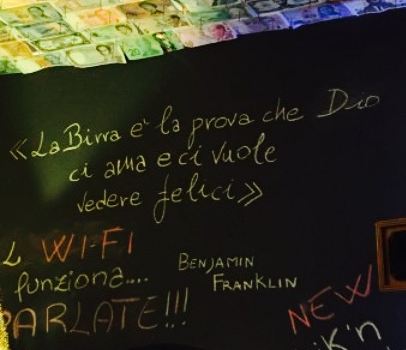 «La Birra è la prova che Dio
ci ama e ci vuole
vedere felici»
L WI-FI
funziona....
PARLATE!!!
BENJAMIN
FRANKLIN
NEW
K'n